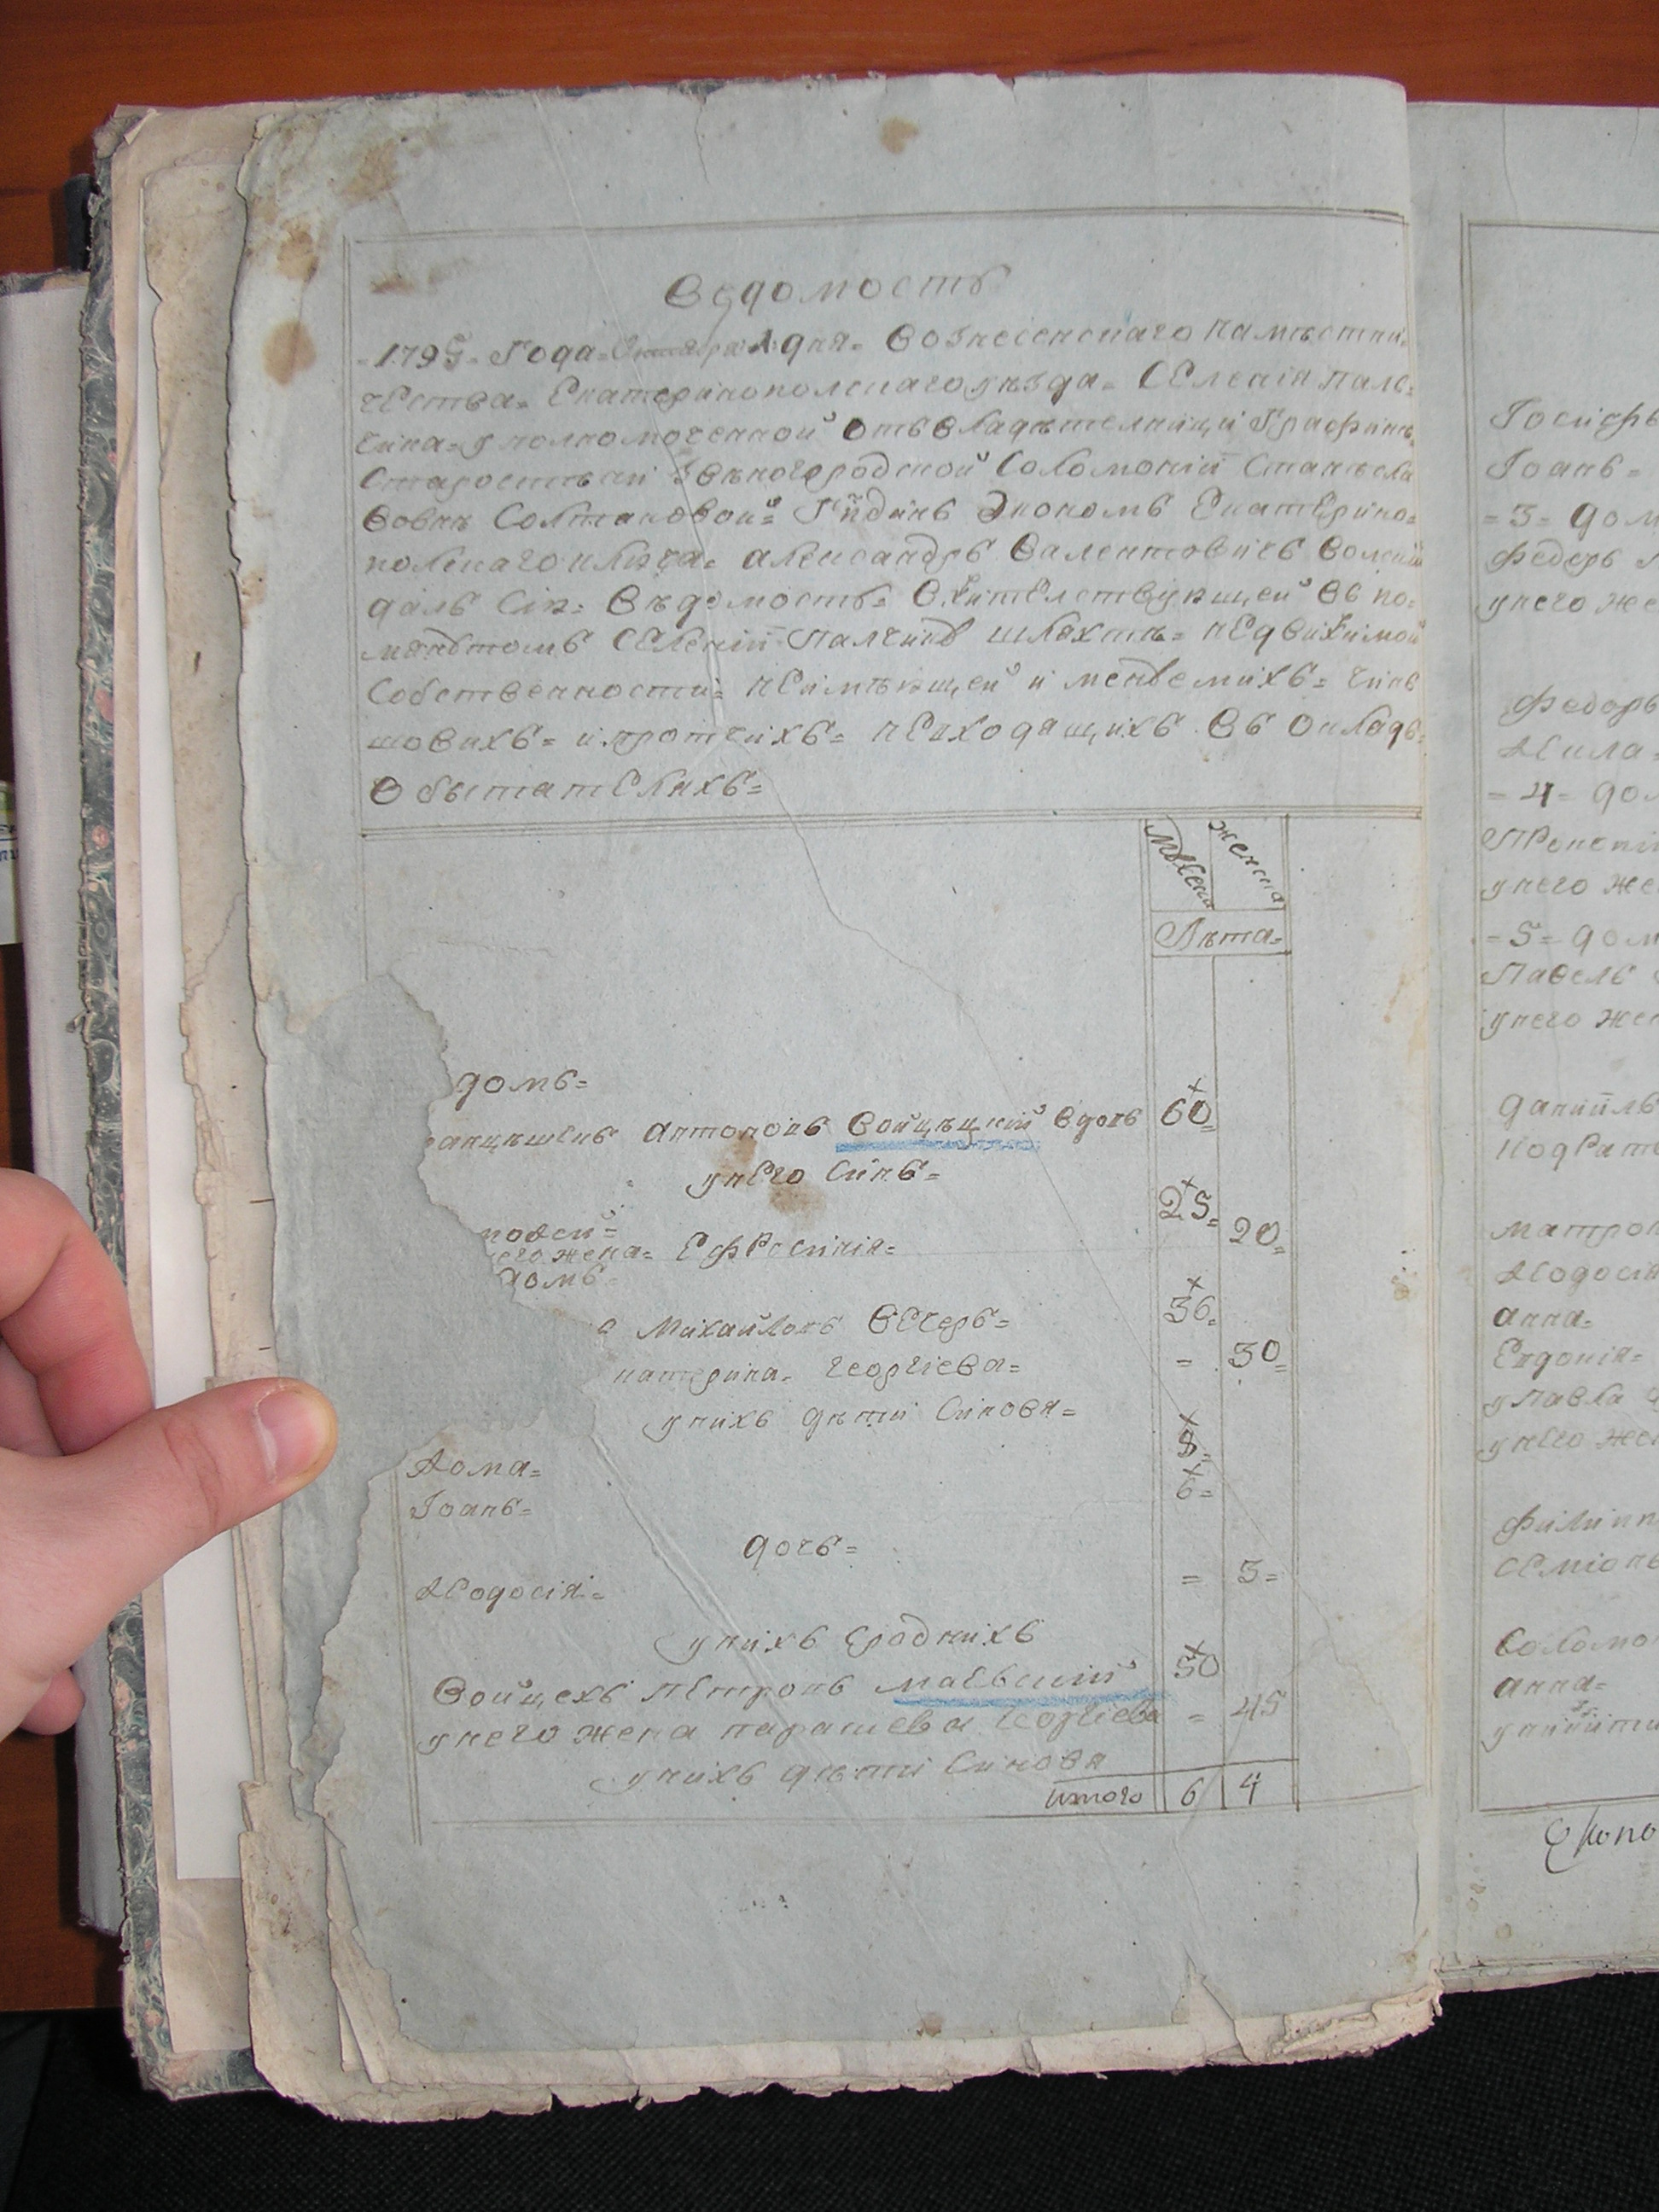 Ведомость
=1795= Года= Октября 1 дня= Вознесенскаго намѣстни
чества= Екатеринополскаго уѣзда= Селенія Пале
чика= уполномоченной отъ владѣтелници Графинѣ
Старостѣни Звѣногородской Соломонїи Станѣсла
вовнѣ Солтиковой= Економъ Екатерино=
полскаго ключа= Александръ Валентовичъ
далъ сію= Вѣдомость= о жителствующей въ по=
мянутомъ селенїи Палчикѣ шляхтѣ= недвижимой
собственности= неимѣющей и между ими= чин
шовихъ= и протчихъ= невходящихъ въ окладъ=
обытателяхъ=
Мужеска женска
Лѣта=
домъ=
анцѣшекъ Антоновъ Войцѣцкій вдовъ 60=
у него синъ=
25=
его жена= Ефросинія= 20=
домъ=
Михайловъ Вечеръ= 36=
катерина= Георгіева= = 30=
у нихъ дѣти синовя=
Ѳома= 8=
Іоанъ= 6=
дочь=
Ѳеодосія= = 3=
у нихъ сродникъ
Войцехъ Петровъ Маевский 50
у него жена параскева Георгіева = 45
у нихъ дѣти синовя
итого 6 4
Іосифъ
Іоанъ=
=3= дом
Федоръ
у него же
Федоръ
=4= до
Прокопи
у него же
=5= дом
Павелъ
у него же
Данійлъ
Кодрат
матрон
Ѳеодосія
анна=
Евдокія=
у Павла
у него же
Филипп
Семіонъ
Соломо
анна=
Еконо